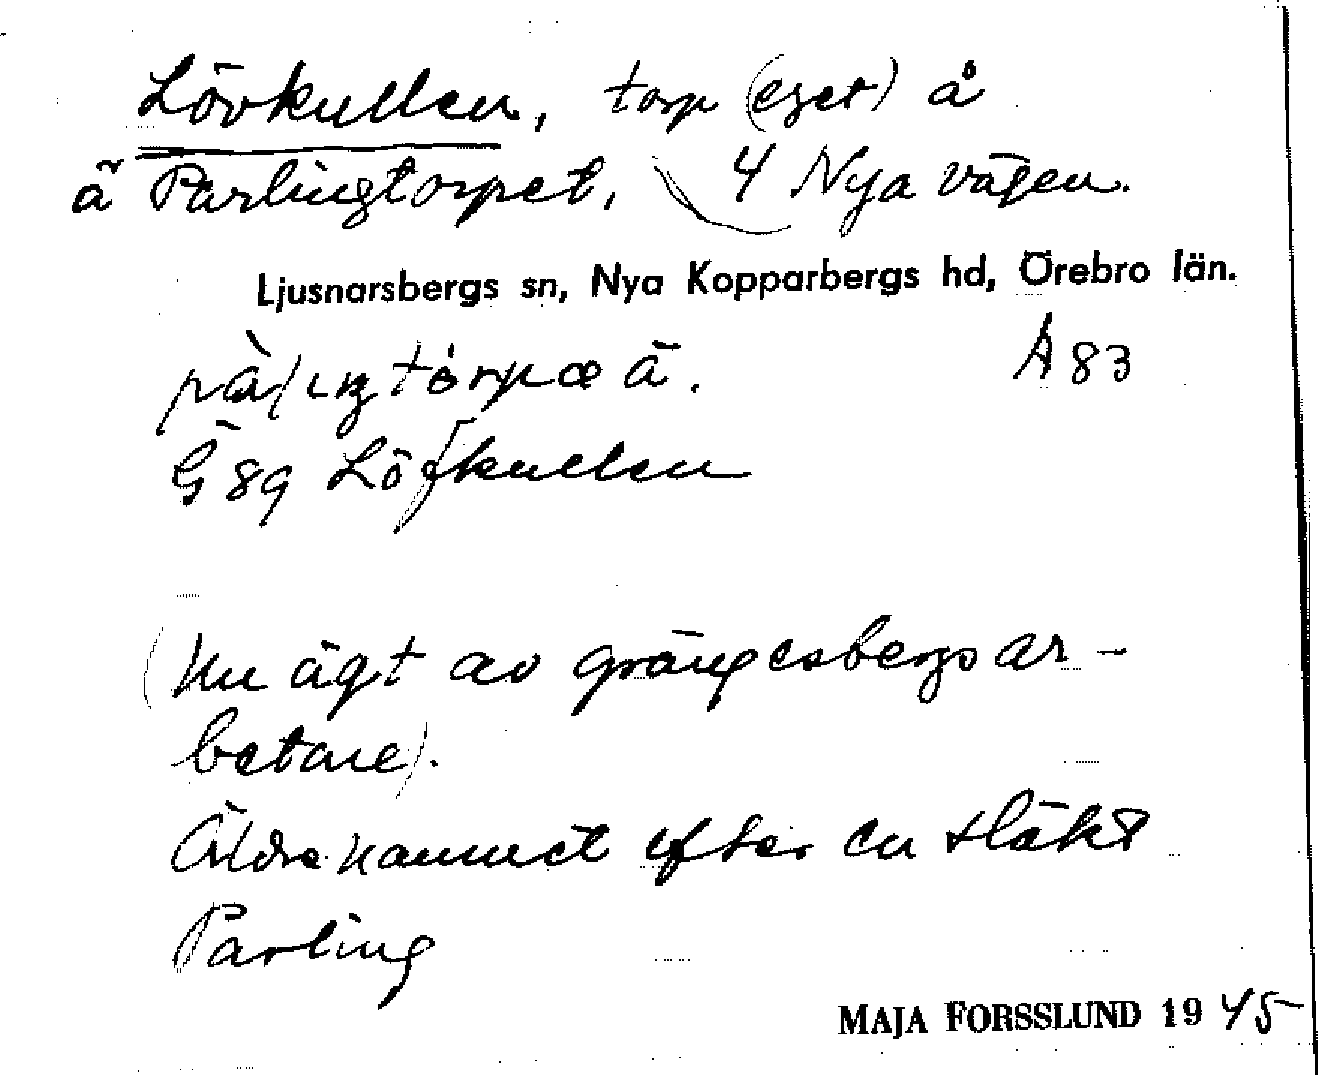 Lövkullen, torp (eget) å
ä Parlingtorpet, 4 Nya vägen.
Ljusnarsbergs sn, Nya Kopparbergs hd, Örebro län.
A 83
G 89 Löfkullen
(Nu ägt av grängesbergsar-
betare).
Äldre namnet efter en släkt
Parling
MAJA FORSSLUND 1945